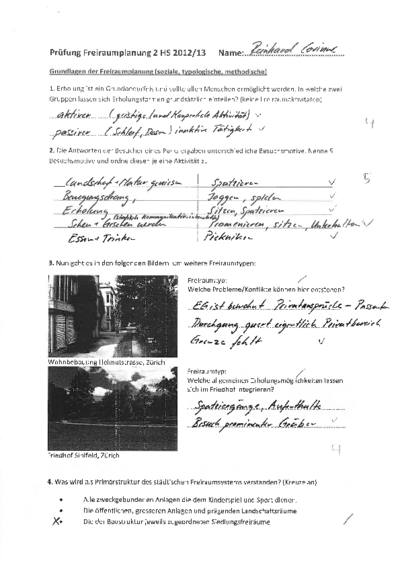 Prüfung Freiraumplanung 2 HS 2012/13 Name: Reinhard Corinne
Grundlagen der Freiraumplanung (soziale, typologische, methodische)
1. Erholung ist ein Grundbedürfnis und sollte allen Menschen ermöglicht werden. In welche zwei
Gruppen lassen sich Erholungsformen grundsätzlich einteilen? (keine Freiraumaktivitäten)
aktiven (geistige und körperliche Aktivität)
passiven (Schlaf, Dösen) inaktive Tätigkeit
4
2. Die Antworten der Besucher eines Parks ergaben unterschiedliche Besuchsmotive. Nenne 5
Besuchsmotive und ordne diesen je eine Aktivität zu.
5
Landschaft + Natur geniessen Spazieren
Bewegungsdrang, Joggen, spielen
Erholung Sitzen, Spazieren
Sehen + Gesehen werden Promenieren, sitzen, Unterhalten
Essen + Trinken Picknicken
3. Nun geht es in den folgenden Bildern um weitere Freiraumtypen:
Freiraumtyp:
Welche Probleme/Konflikte können hier entstehen?
EG ist bewohnt Privatansprüche – Passant
Durchgang quert eigentlich Privatbereich
Grenze fehlt
Wohnbebauung Helmutstrasse, Zürich
Freiraumtyp:
Welche allgemeinen Erholungsmöglichkeiten lassen
sich im Friedhof integrieren?
Spaziergänge, Aufenthalte
Besuch prominenter Gräber
4
Friedhof Sihlfeld, Zürich
4. Was wird als Primärstruktur des städtischen Freiraumsystems verstanden? (Kreuze an)
• Alle zweckgebundenen Anlagen die dem Kinderspiel und Sport dienen.
• Die öffentlichen, grösseren Anlagen und prägenden Landschaftsräume
X • Die der Baustruktur jeweils zugeordneten Siedlungsfreiräume